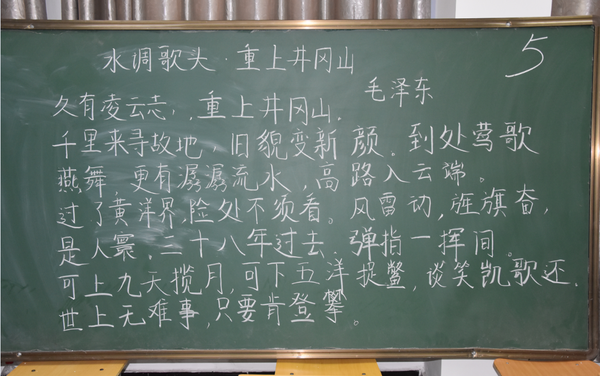 水调歌头·重上井冈山
5
毛泽东
久有凌云志,重上井冈山.
千里来寻故地,旧貌变新颜.到处莺歌
燕舞,更有潺潺流水,高路入云端。
过了黄洋界,险处不须看。风雷动,旌旗奋,
是人寰,三十八年过去,弹指一挥间。
可上九天揽月,可下五洋捉鳖,谈笑凯歌还.
世上无难事,只要肯登攀。